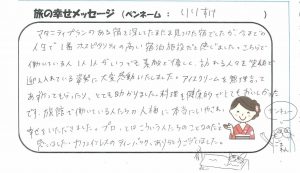 旅の幸せメッセージ (ペンネーム: りりすけ )
マタニティプランのある宿を探していたまたま見つけた宿でしたが、今までの
人生で1番ホスピタリティの高い宿泊施設だと感じました。こちらで
働いている人1人1人がいつでも素敵で優しく、訪れる人を笑顔で
迎え入れている姿勢に大変感動いたしました。アイスクリームを無料で
あり、とても助かりました。料理も健康的でとてもおいしかった
です。旅館で働いている人たちが人柄に本当にいやされ、
幸せをいただきました。プロとはこういう人たちのことなのだと
感じました。ホスピタリティ ありがとうございました。
ペンネーム